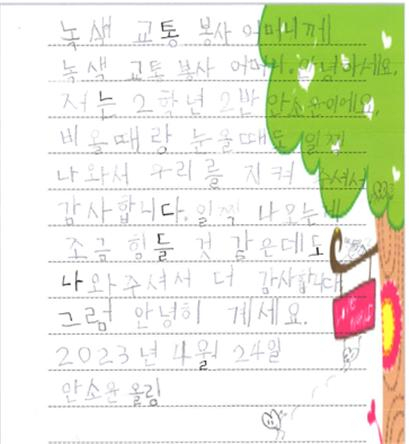 녹색 교통 봉사 어머니께
녹색 교통 봉사 어머니. 안녕하세요,
저는 2학년 2반 안소윤이에요.
비올때랑 눈올때도 일찍
나와서 우리를 지켜 주셔서
감사합니다. 일찍 나오는게
조금 힘들 것 같은데도
나와주셔서 더 감사합니다
그럼 안녕히 계세요.
2023년 4월 24일
안소윤 올림